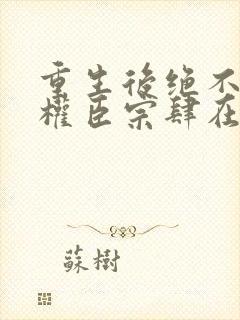 重生後绝不
權臣宗肆在
蘇樹